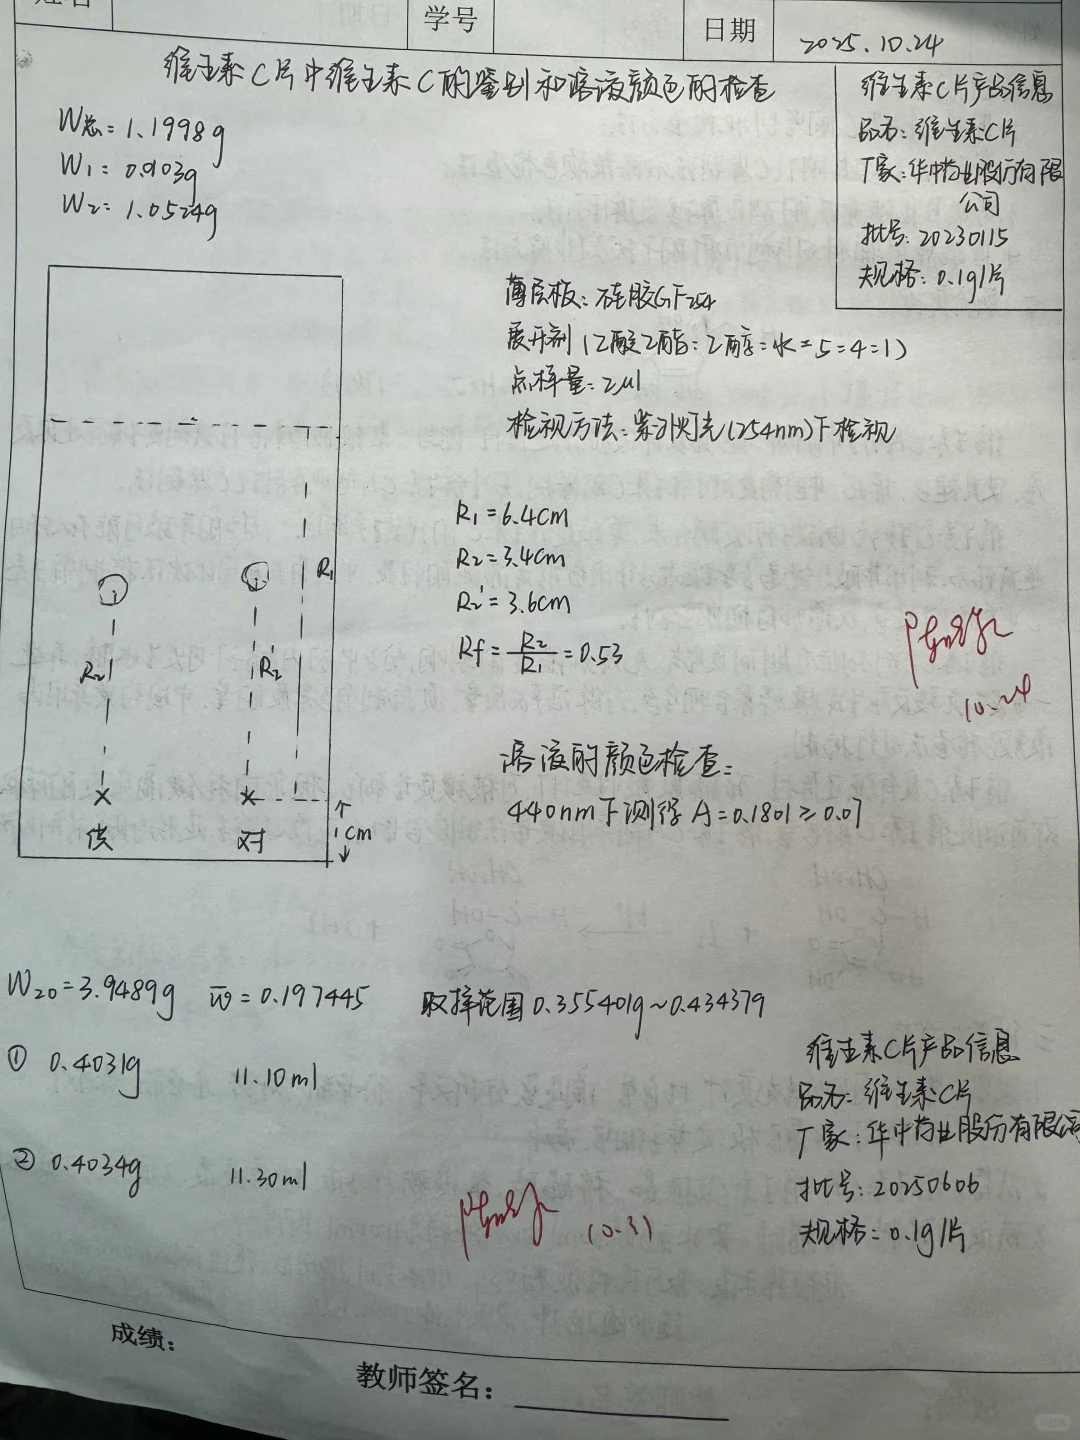 姓名
学号
日期
2025.10.24
维生素C片中维生素C的鉴别和溶液颜色的检查
W总=1.1998g
W1=0.9103g
W2=1.0524g
维生素C片产品信息
品名:维生素C片
厂家:华中药业股份有限
公司
批号:20230115
规格:0.1g/片
薄层板:硅胶GF254
展开剂(乙酸乙酯:乙醇:水=5:4:1)
点样量:2μl
检视方法:紫外灯光(254nm)下检视
R1
R2
R2'
供
对
1cm
R1=6.4cm
R2=3.4cm
R2'=3.6cm
Rf=R2/R1=0.53
10.24
溶液的颜色检查:
440nm下测得A=0.1801≥0.07
W20=3.9489g
w̄=0.197445
取样范围0.355401g~0.434379
① 0.4031g 11.10ml
② 0.4034g 11.30ml
10.31
维生素C片产品信息
品名:维生素C片
厂家:华中药业股份有限公司
批号:20250606
规格:0.1g/片
成绩:
教师签名: